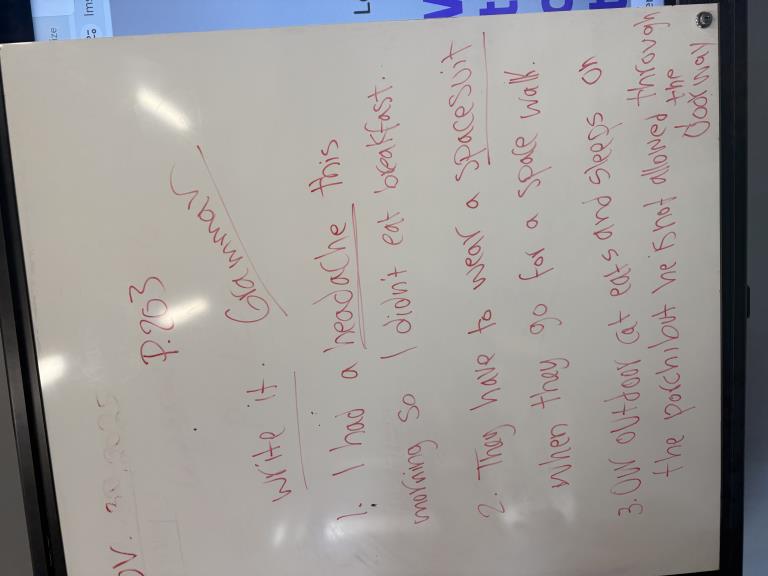 P.203
Grammar
Write it.
1. I had a headache this
morning so I didn't eat breakfast.
2. They have to wear a spacesuit
when they go for a space walk.
3. Our outdoor cat eats and sleeps on
the porch but he is not allowed through
the
doorway